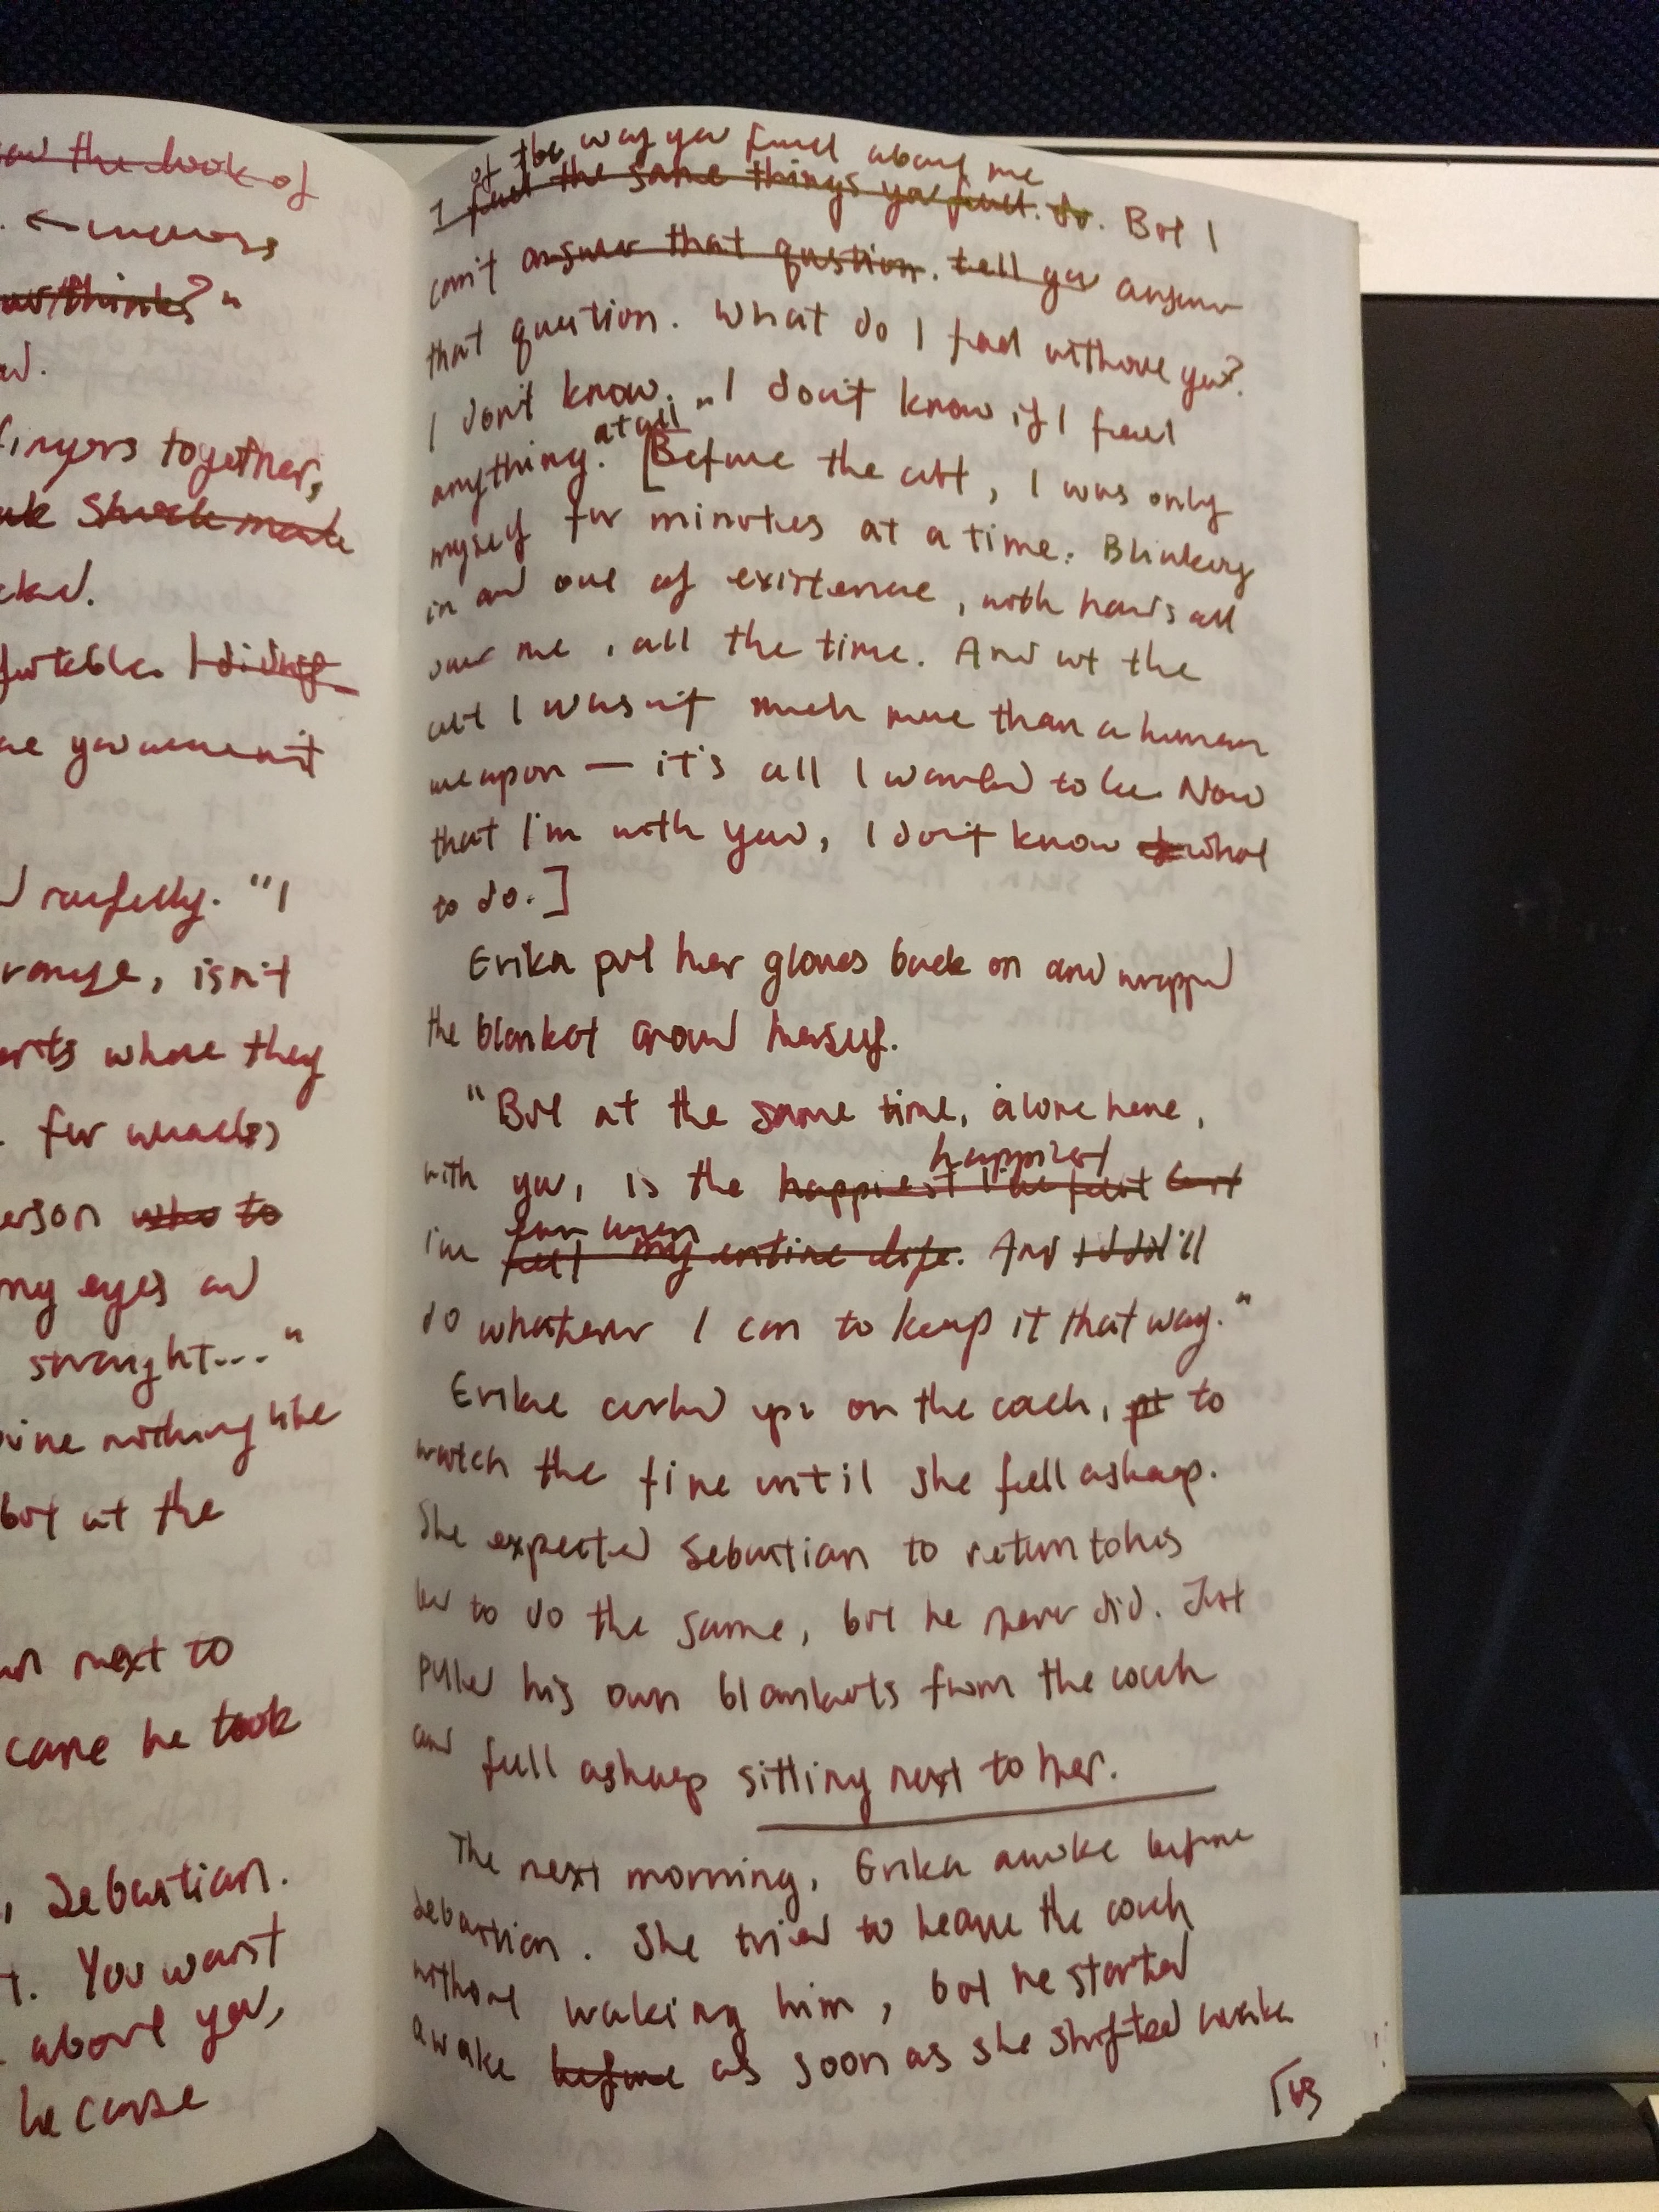 saw the look of
←
/thinks?"
fingers together,
Shock made
I didn't
you weren't
ruefully. "I
, isn't
where they
for weeks,
person who to
my eyes and
straight..."
nothing like
but at the
next to
came he took
, Sebastian.
. You want
about you,
because
of the way you feel about me
I feel the same things you feel. do. But I
can't answer that question. tell you answer
that question. What do I feel without you?
I don't know. "I don't know if I feel
at all
anything." [Before the cult, I was only
myself for minutes at a time. Blinking
in and out of existence, with hands all
over me, all the time. And at the
cult I wasn't much more than a human
weapon — it's all I wanted to be. Now
that I'm with you, I don't know what
to do.]
Erika put her gloves back on and wrapped
the blanket around herself.
"But at the same time, alone here,
happiest
with you, is the happiest I've felt
ever been
I've felt my entire life. And I'll
do whatever I can to keep it that way."
Erika curled up on the couch, to
watch the fire until she fell asleep.
She expected Sebastian to return to his
bed to do the same, but he never did. Just
pulled his own blankets from the couch
and fell asleep sitting next to her.
The next morning, Erika awoke before
Sebastian. She tried to leave the couch
without waking him, but he started
awake before as soon as she shifted